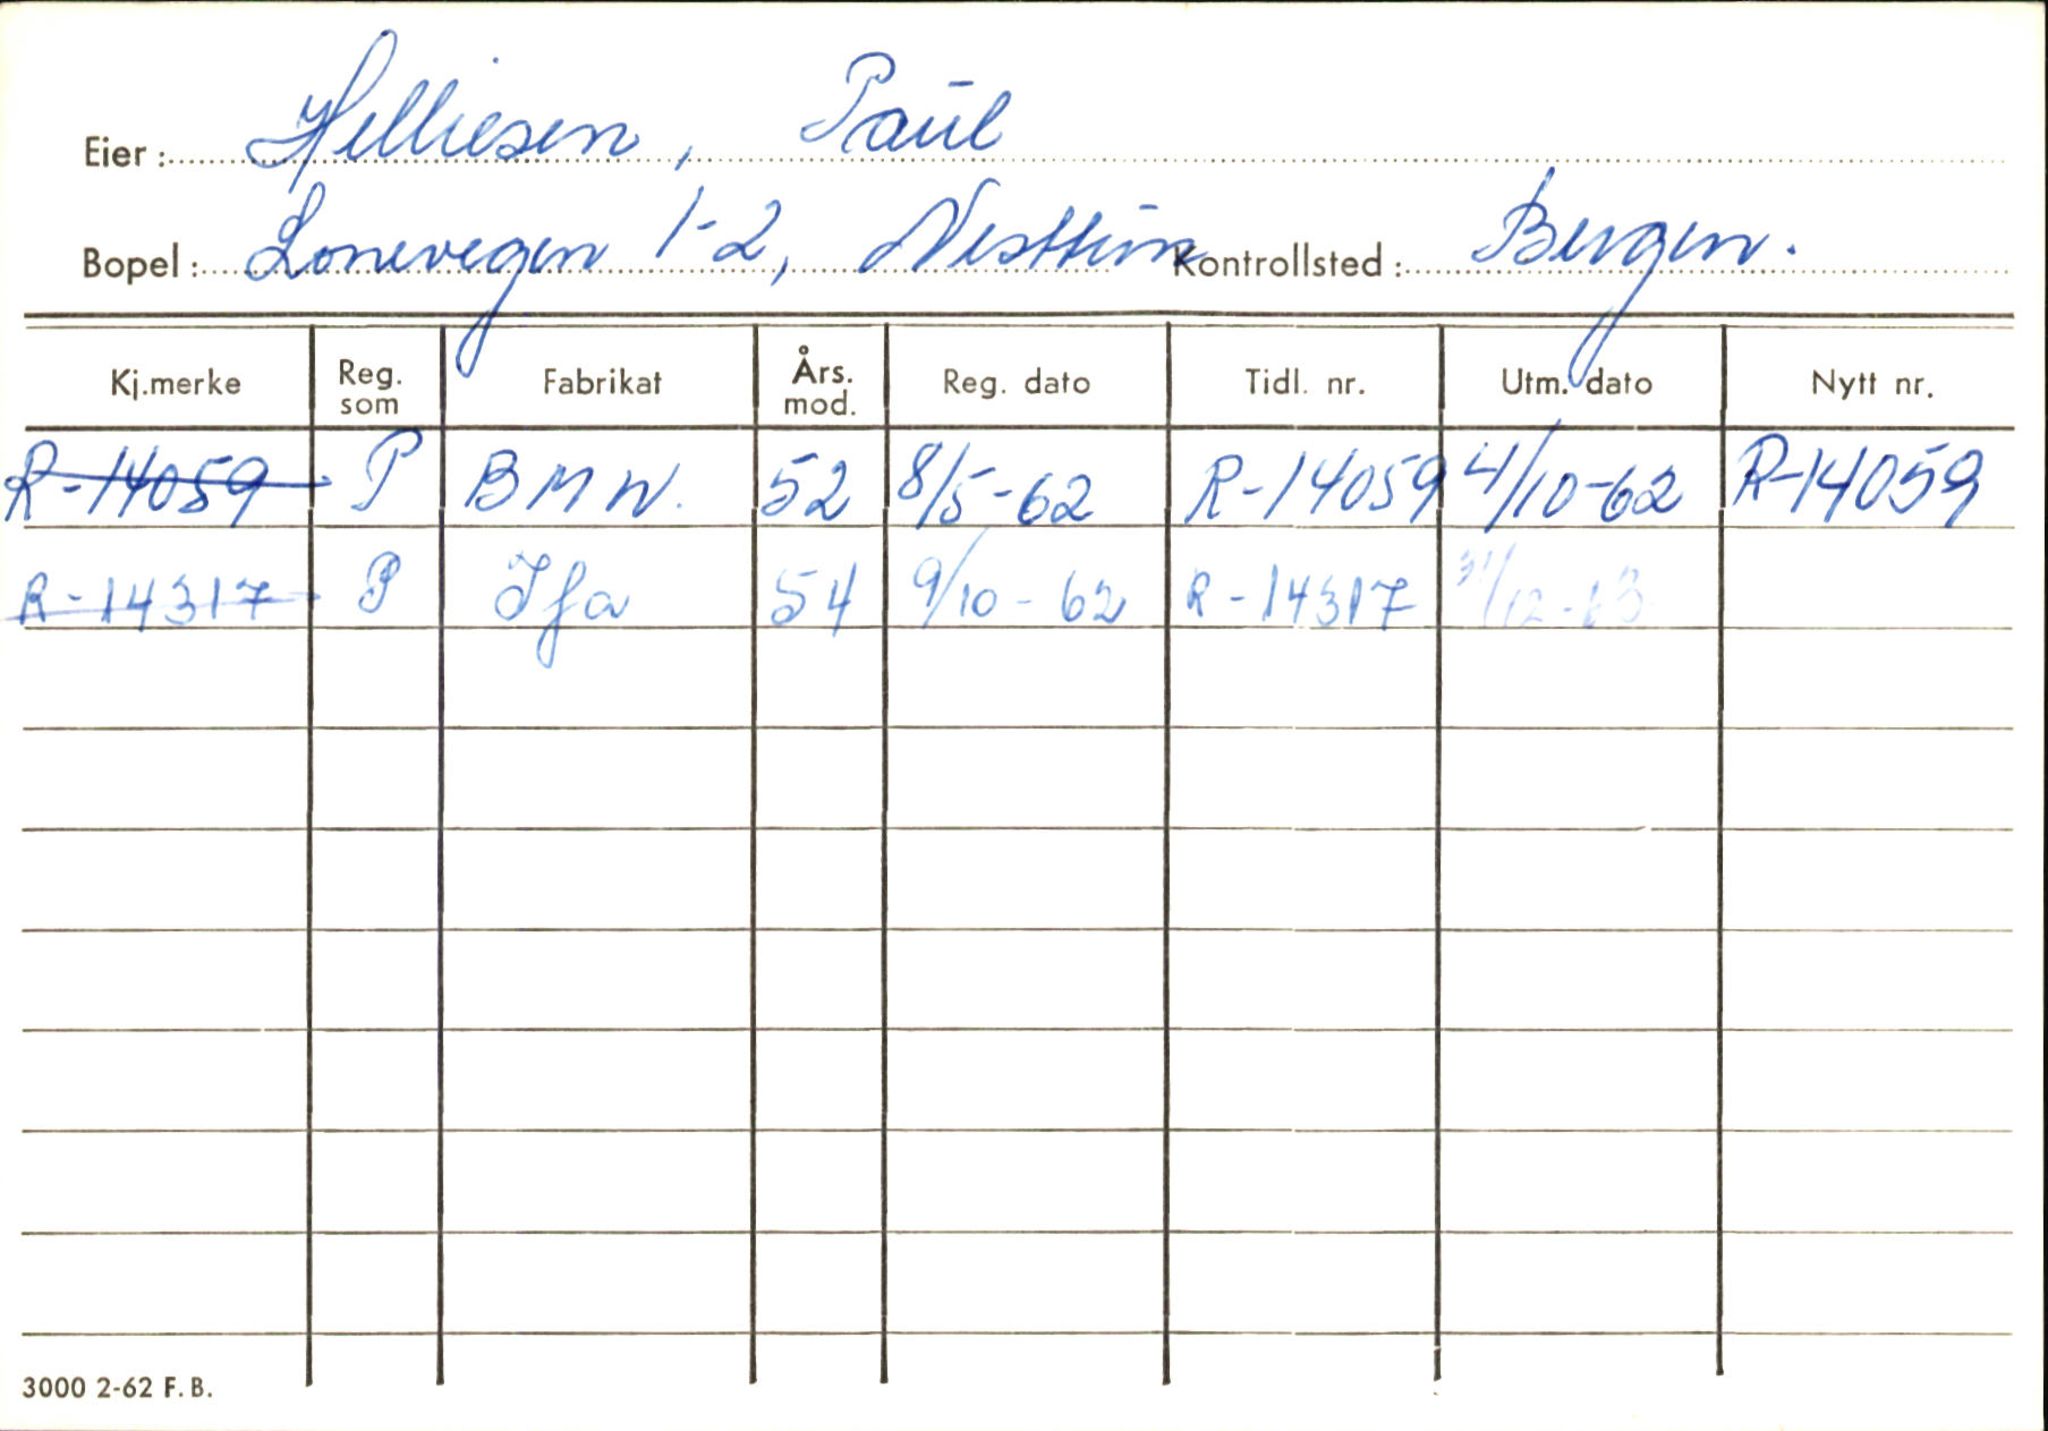 Eier: Helliesen, Paul
Bopel: Lonevegen 1-2, Nesttun Kontrollsted: Bergen.
Kj.merke Reg. som Fabrikat Års. mod. Reg. dato Tidl. nr. Utm. dato Nytt nr.
R-14059 P BMW. 52 8/5-62 R-14059 4/10-62 R-14059
R-14317 P Ifa 54 9/10-62 R-14317 31/12-63
3000 2-62 F.B.